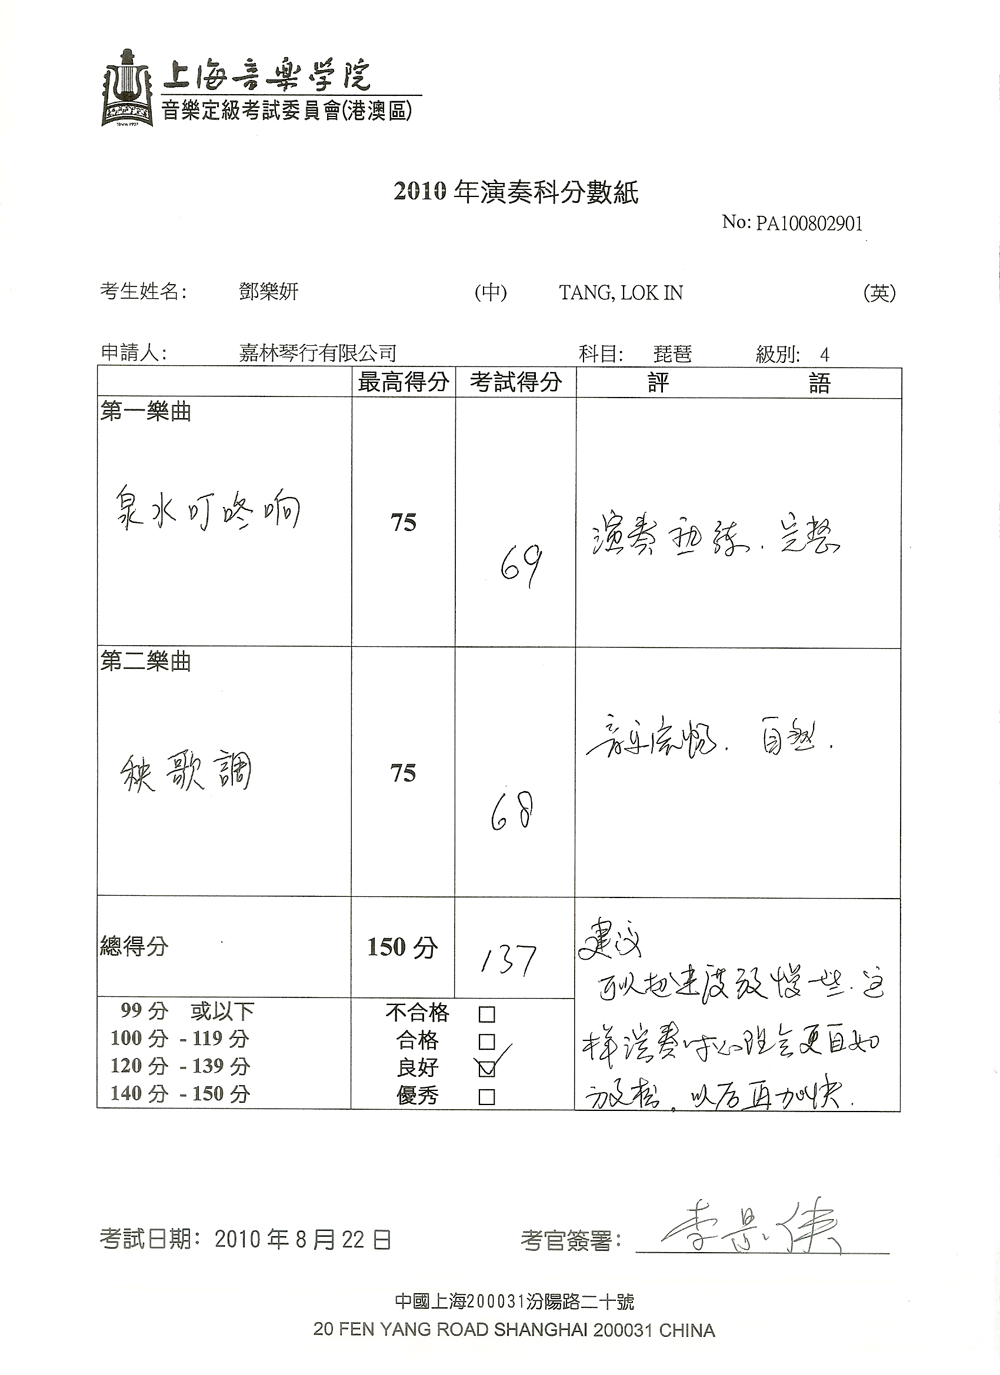 上海音楽学院
音樂定級考試委員會(港澳區)
2010 年演奏科分數紙
No: PA100802901
考生姓名: 鄧樂妍 (中) TANG, LOK IN (英)
申請人: 嘉林琴行有限公司 科目: 琵琶 級別: 4
最高得分 考試得分 評 語
第一樂曲
泉水叮咚响
75
69
演奏熟练. 完整
第二樂曲
秧歌調
75
68
音乐流畅. 自然.
總得分 150 分 137
99 分 或以下 不合格 ☐
100 分 - 119 分 合格 ☐
120 分 - 139 分 良好 ☑
140 分 - 150 分 優秀 ☐
建议
可以把速度放慢一些. 这
样演奏时心理会更自如
放松. 以后再加快.
考試日期: 2010 年 8 月 22 日 考官簽署: 李景侠
中國上海200031汾陽路二十號
20 FEN YANG ROAD SHANGHAI 200031 CHINA